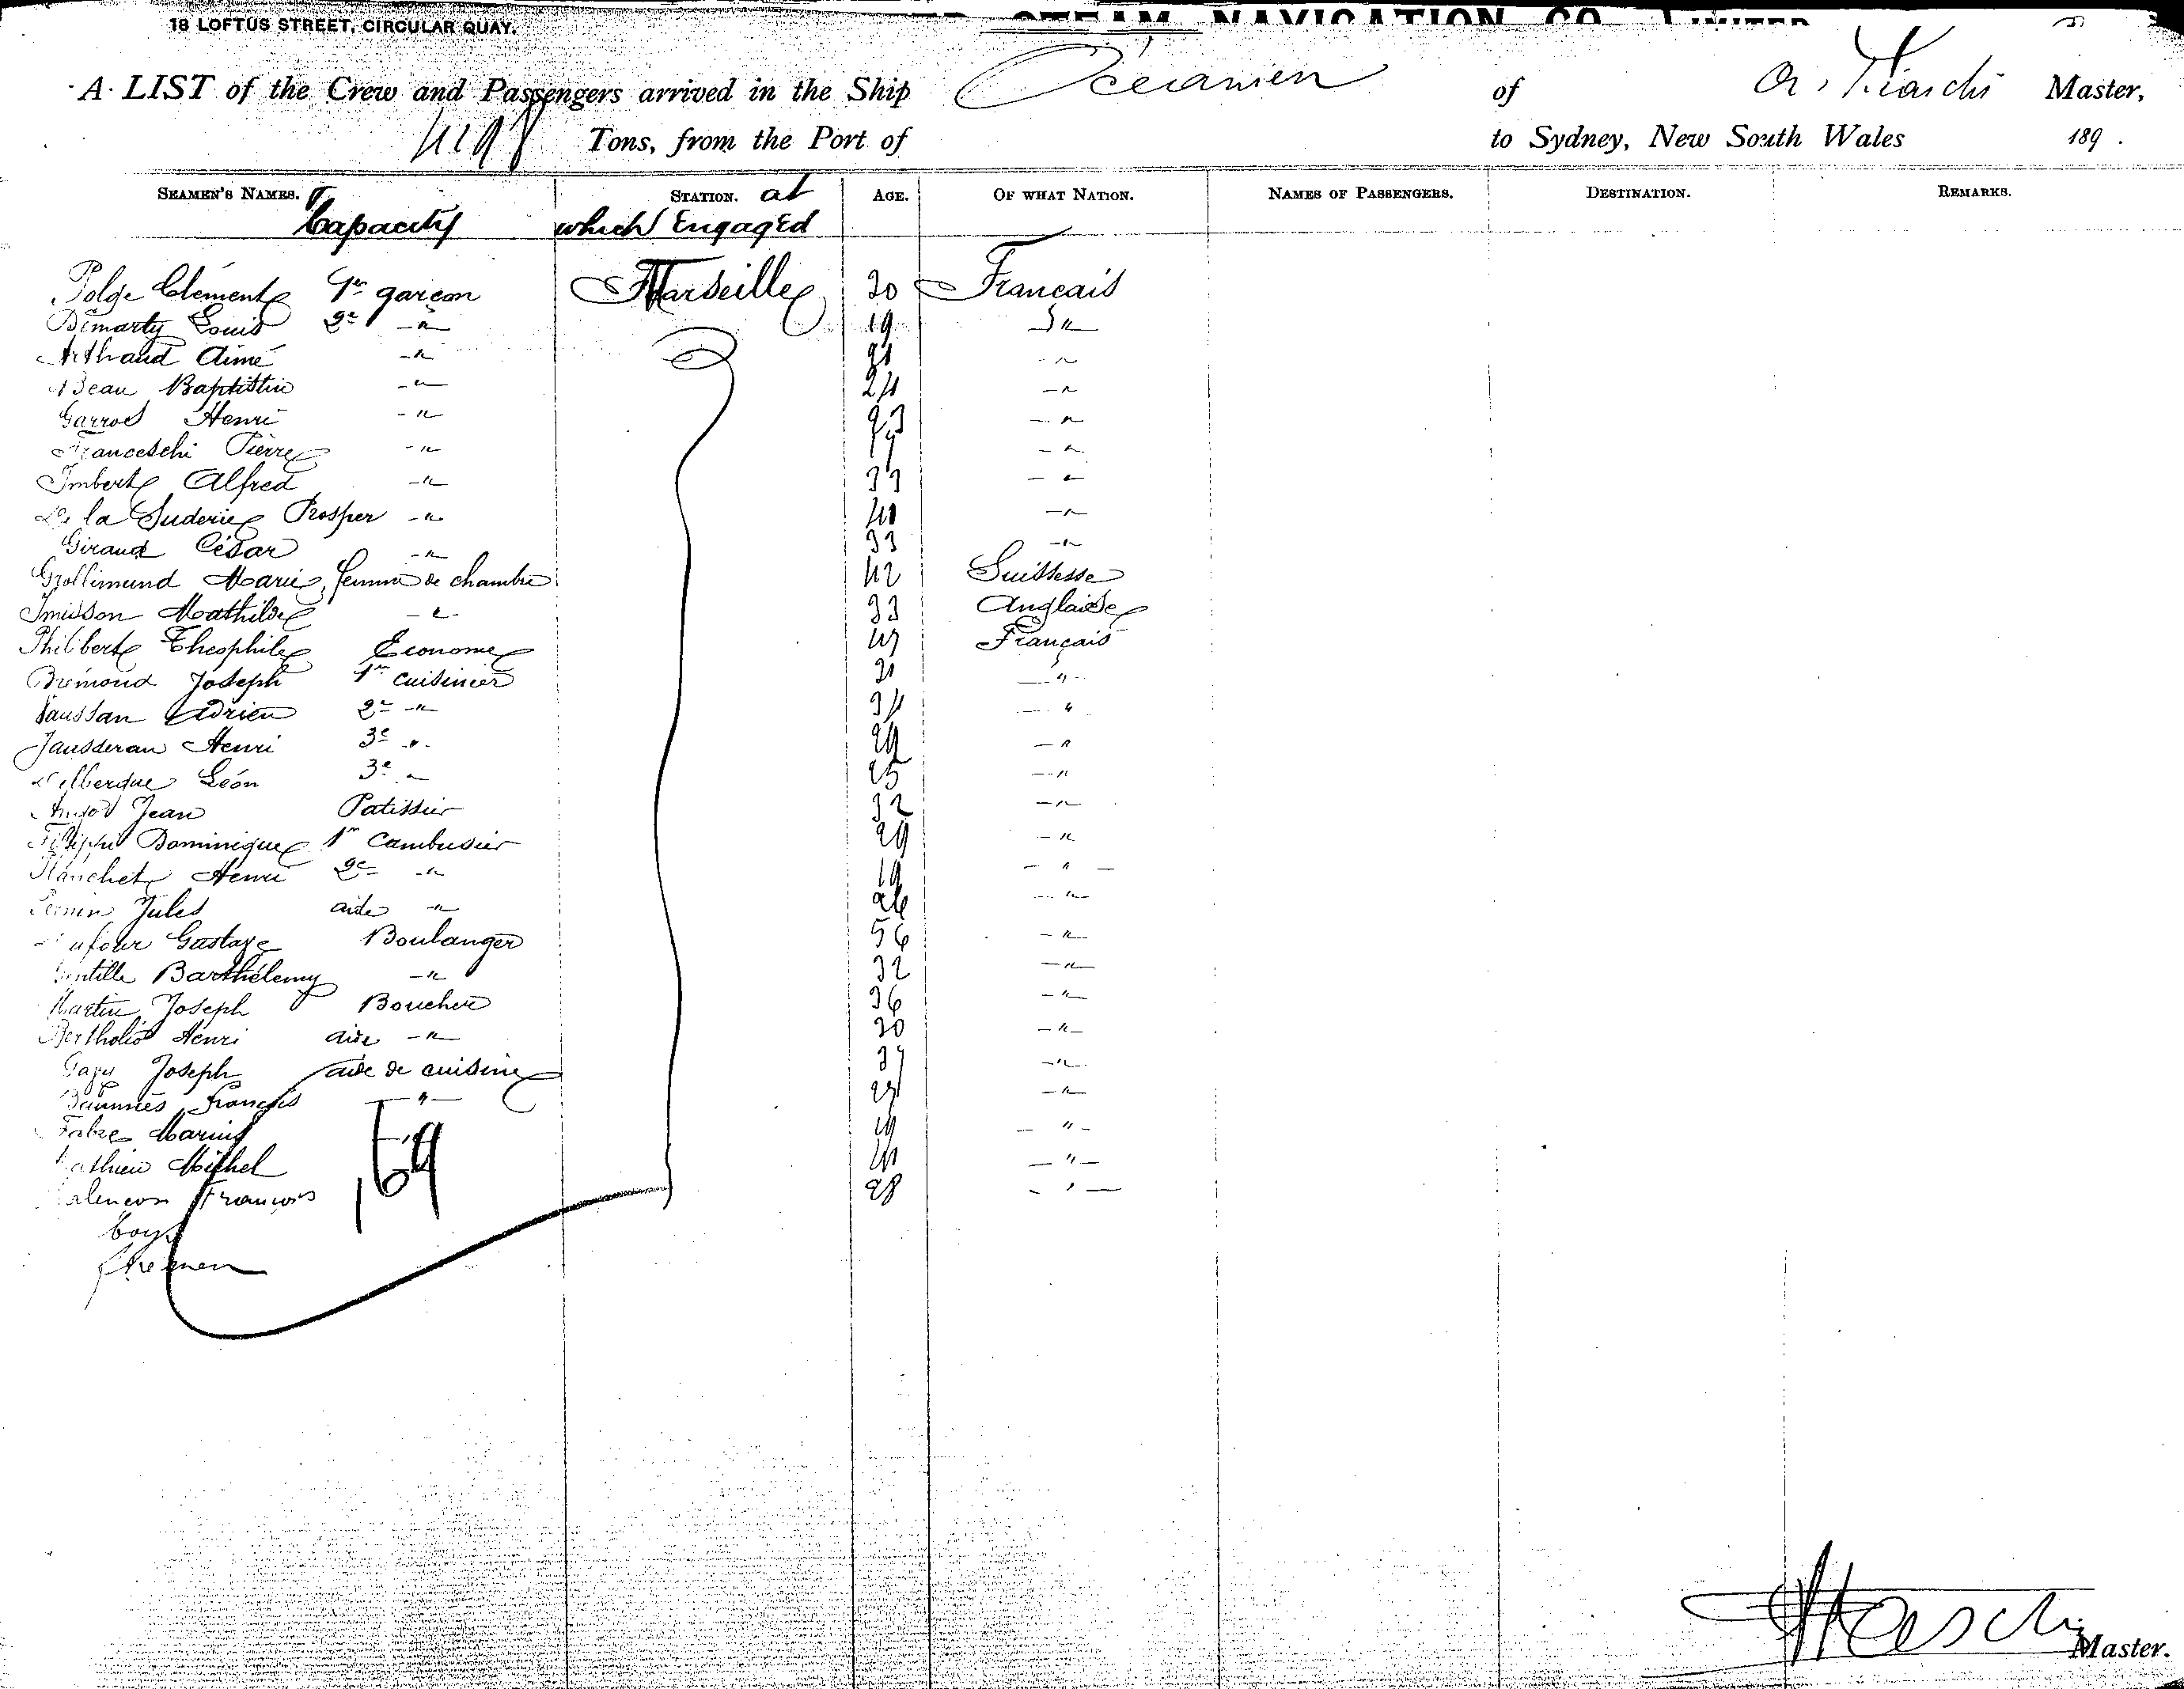 18 LOFTUS STREET, CIRCULAR QUAY.
STEAM NAVIGATION CO. LIMITED
A LIST of the Crew and Passengers arrived in the Ship Océanien of Master,
Tons, from the Port of to Sydney, New South Wales 189 .
SEAMEN'S NAMES. & Capacity STATION. at which Engaged AGE. OF WHAT NATION. NAMES OF PASSENGERS. DESTINATION. REMARKS.
Polge Clément 1er garçon Marseille 30 Français
Démarty Louis 2e -"- 19 -"-
Arthaud Aimé -"- 21 -"-
Beau Baptistin -"- 24 -"-
Garrod Henri -"- 23 -"-
Franceschi Pierre -"- -"-
Imbert Alfred -"- 33 -"-
De la Suderie Prosper -"- -"-
Giraud César -"- 33 -"-
Grollimund Marie, femme de chambre 42 Suissesse
Smisson Mathilde -"- 33 Anglaise
Philibert Théophile Econome Français
Brémond Joseph 1er cuisinier 31 -"-
Jaussan Adrien 2e -"- 34 -"-
Jausseran Henri 3e -"- 29 -"-
Léon 3e -"- 25 -"-
Jean Patissier 32 -"-
Filippi Dominique 1er Cambusier 29 -"-
Planchet Henri 2e -"- 19 -"-
Jules aide -"- 26 -"-
Dufour Gustave Boulanger 56 -"-
Gentille Barthélemy -"- 32 -"-
Martin Joseph Boucher 36 -"-
Bertholio Henri aide -"- 30 -"-
Joseph aide de cuisine -"-
François -"- -"-
Fabre Marius -"-
Mathieu Michel -"-
Alençon François 28 -"-
boys
firemen
169
Master.